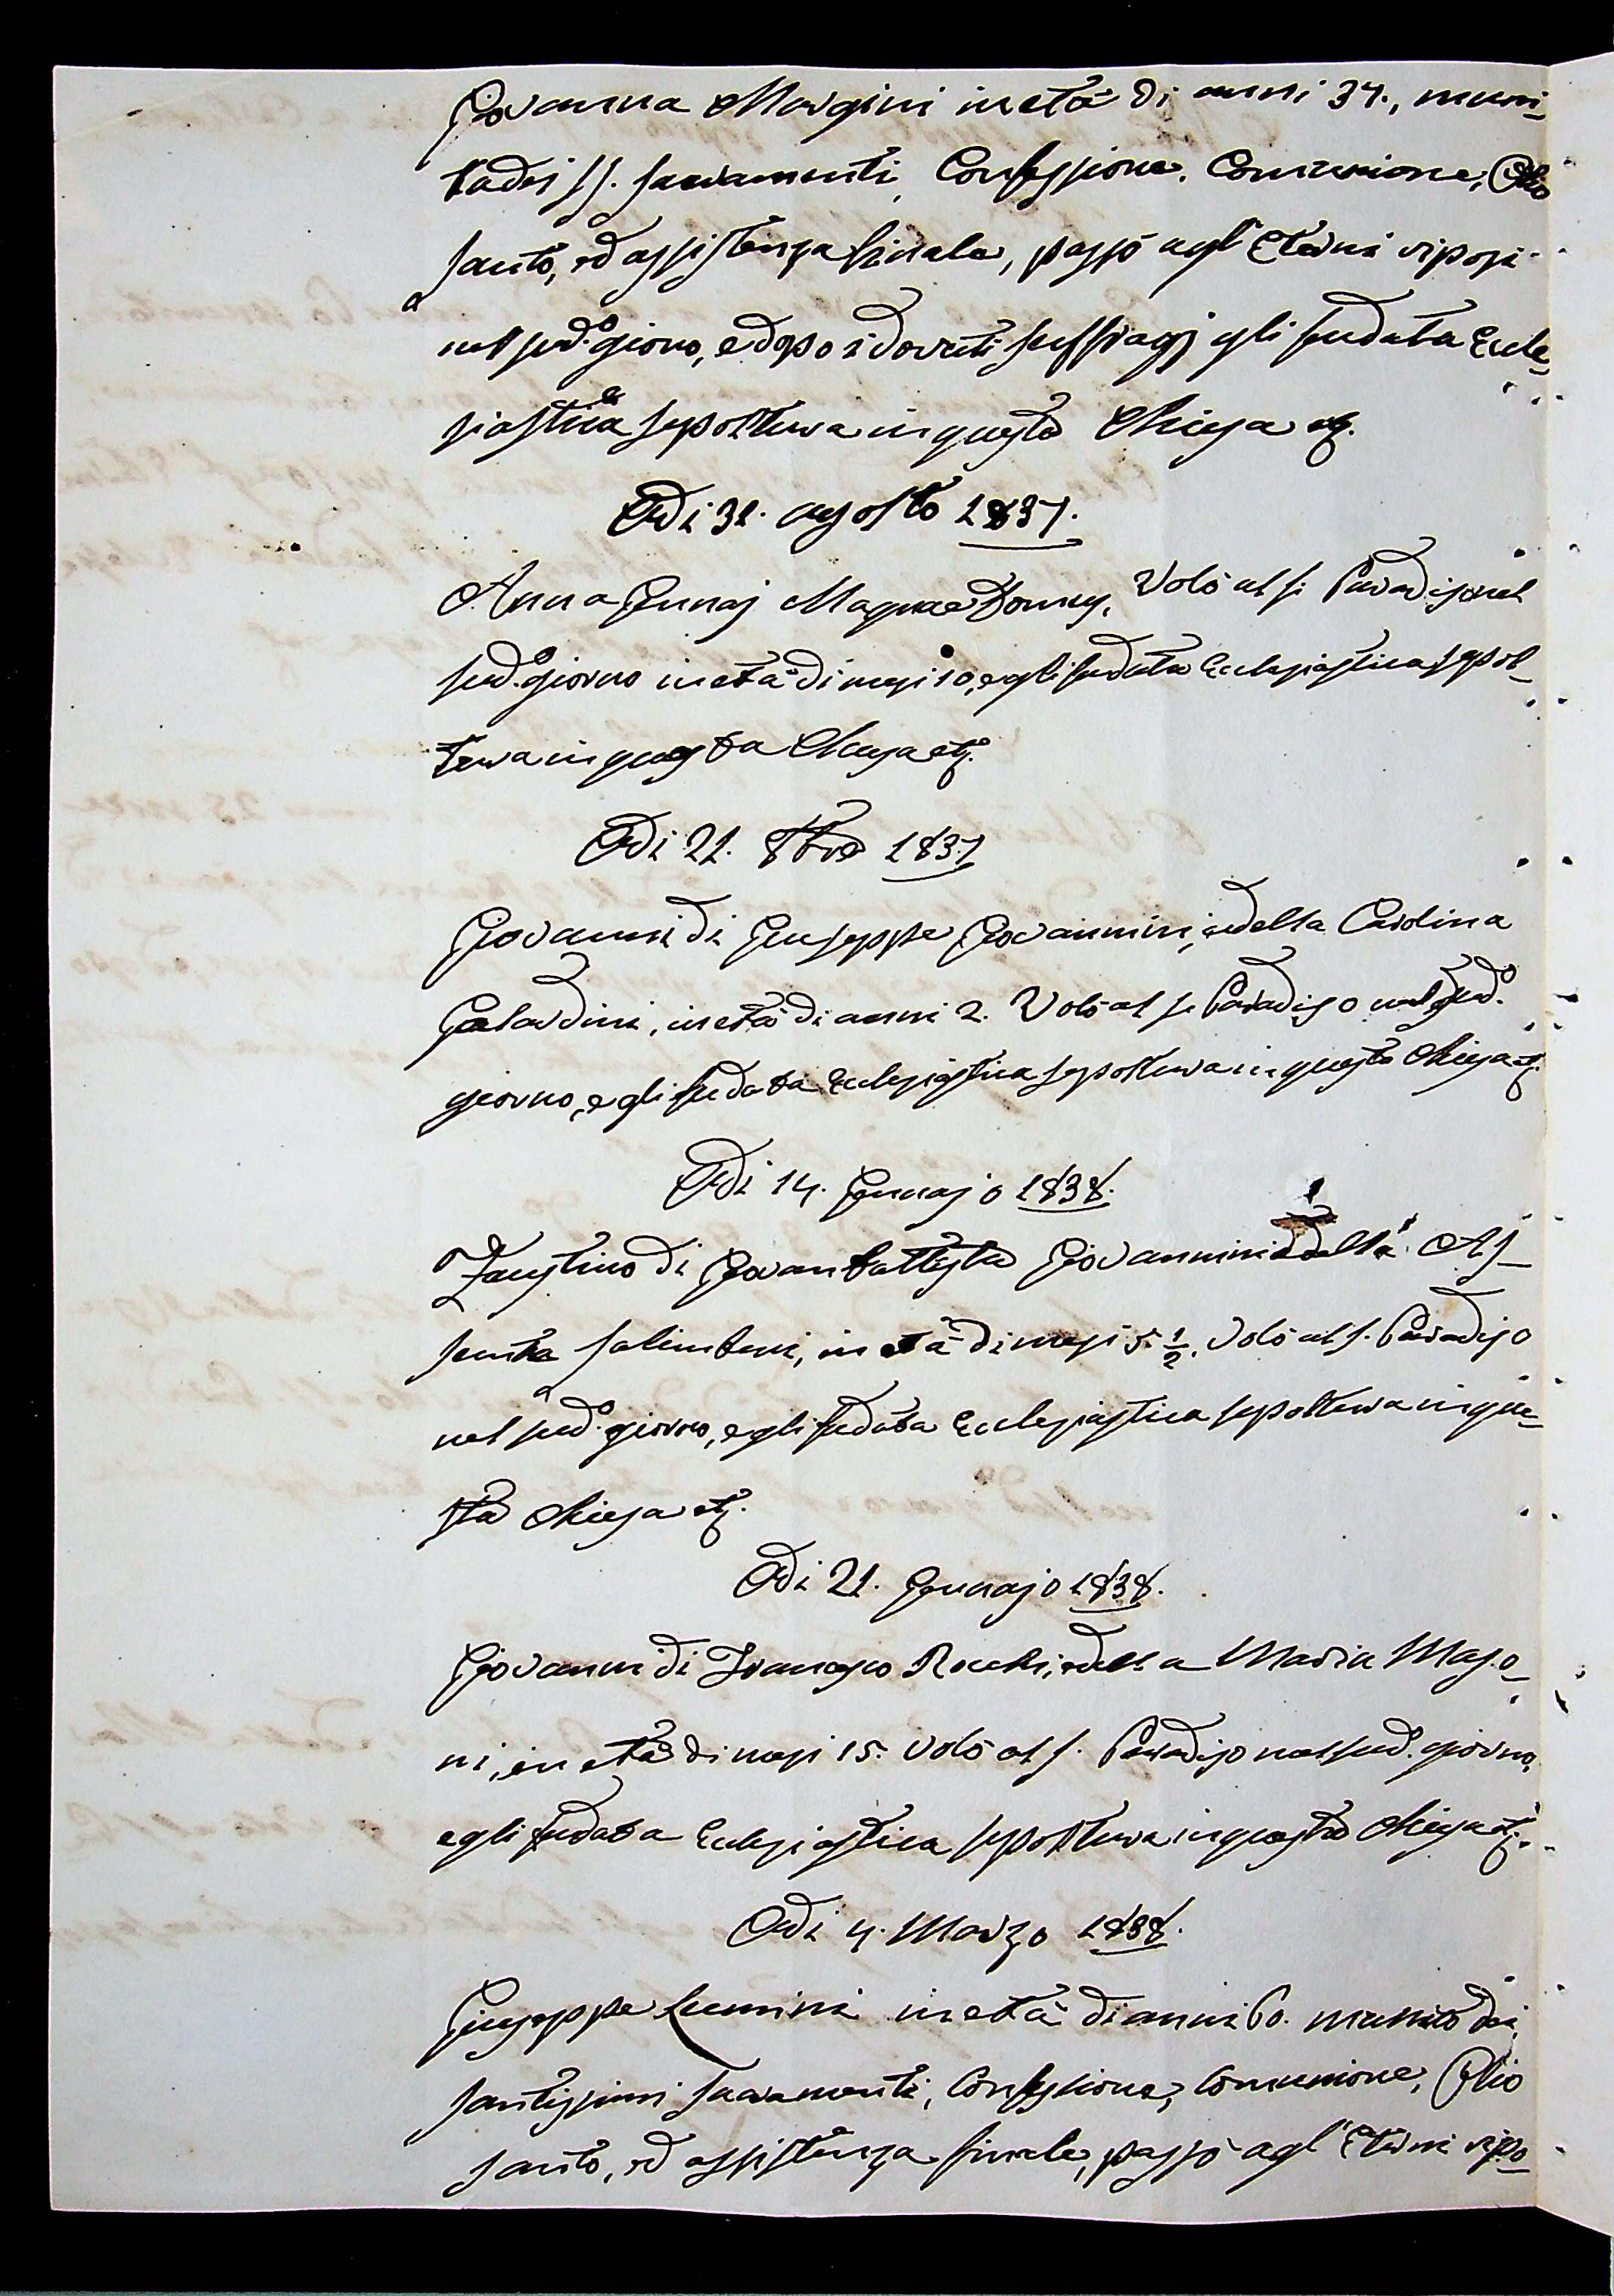 Giovanna Morgini in età di anni 34., muni-
ta dei SS. Sacramenti, Confessione, Comunione, Olio
Santo, ed assistenza finale, passò agl' Eterni riposi
nel sud.º giorno, e dopo i dovuti suffragj gli fu data Eccle-
siastica sepoltura in questa Chiesa etc.
Adi 31. agosto 1837.
Anna Gennaj Domes. Volò al S. Paradiso nel
sud.º giorno in età di mesi 10, e gli fu data Ecclesiastica sepol-
tura in questa Chiesa etc.
Adi 21. 8bre 1837
Giovanni di Giuseppe Giovannini, e della Carolina
Galardini, in età di anni 2. Volò al S. Paradiso nel sud.º
giorno, e gli fu data Ecclesiastica sepoltura in questa Chiesa etc.
Adi 14. Gennajo 1838.
Faustino di Giovan battista Giovannini e della As-
sunta Salimbeni, in età di mesi 5. ½. Volò al S. Paradiso
nel sud.º giorno, e gli fu data Ecclesiastica sepoltura in que-
sta Chiesa etc.
Adi 21. Gennajo 1838.
Giovanni di Francesco Rocchi, e della Maria Maso-
ni, in età di mesi 15. volò al S. Paradiso nel sud. giorno,
e gli fu data Ecclesiastica sepoltura in questa Chiesa etc.
Adi 4. Marzo 1838.
Giuseppe Lumini in età di anni 60. munito dei
Santissimi Sacramenti, Confessione, Comunione, Olio
Santo, ed assistenza finale, passò agl' Eterni ripo-